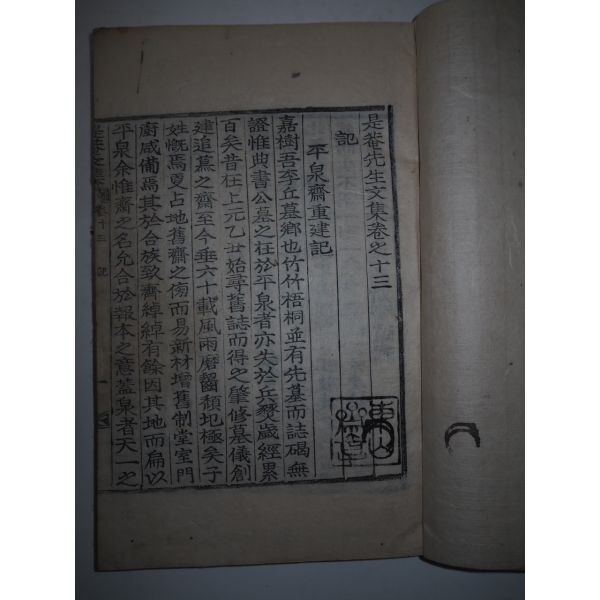 是菴先生文集卷之十三
記
平泉齋重建記
嘉樹吾李丘墓鄉也竹竹梧桐並有先墓而誌碣無
證惟典書公墓之在於平泉者亦失於兵燹歲經累
百矣昔在上元乙丑始尋舊誌而得之肇修墓儀創
建追慕之齋至今垂六十載風雨磨齧頹圮極矣子
姓慨焉更占地舊齋之傍而易新材增舊制堂室門
廚咸備焉其於合族致齊綽綽有餘因其地而扁以
平泉余惟齋之名允合於報本之意蓋泉者天一之
卷十三 記